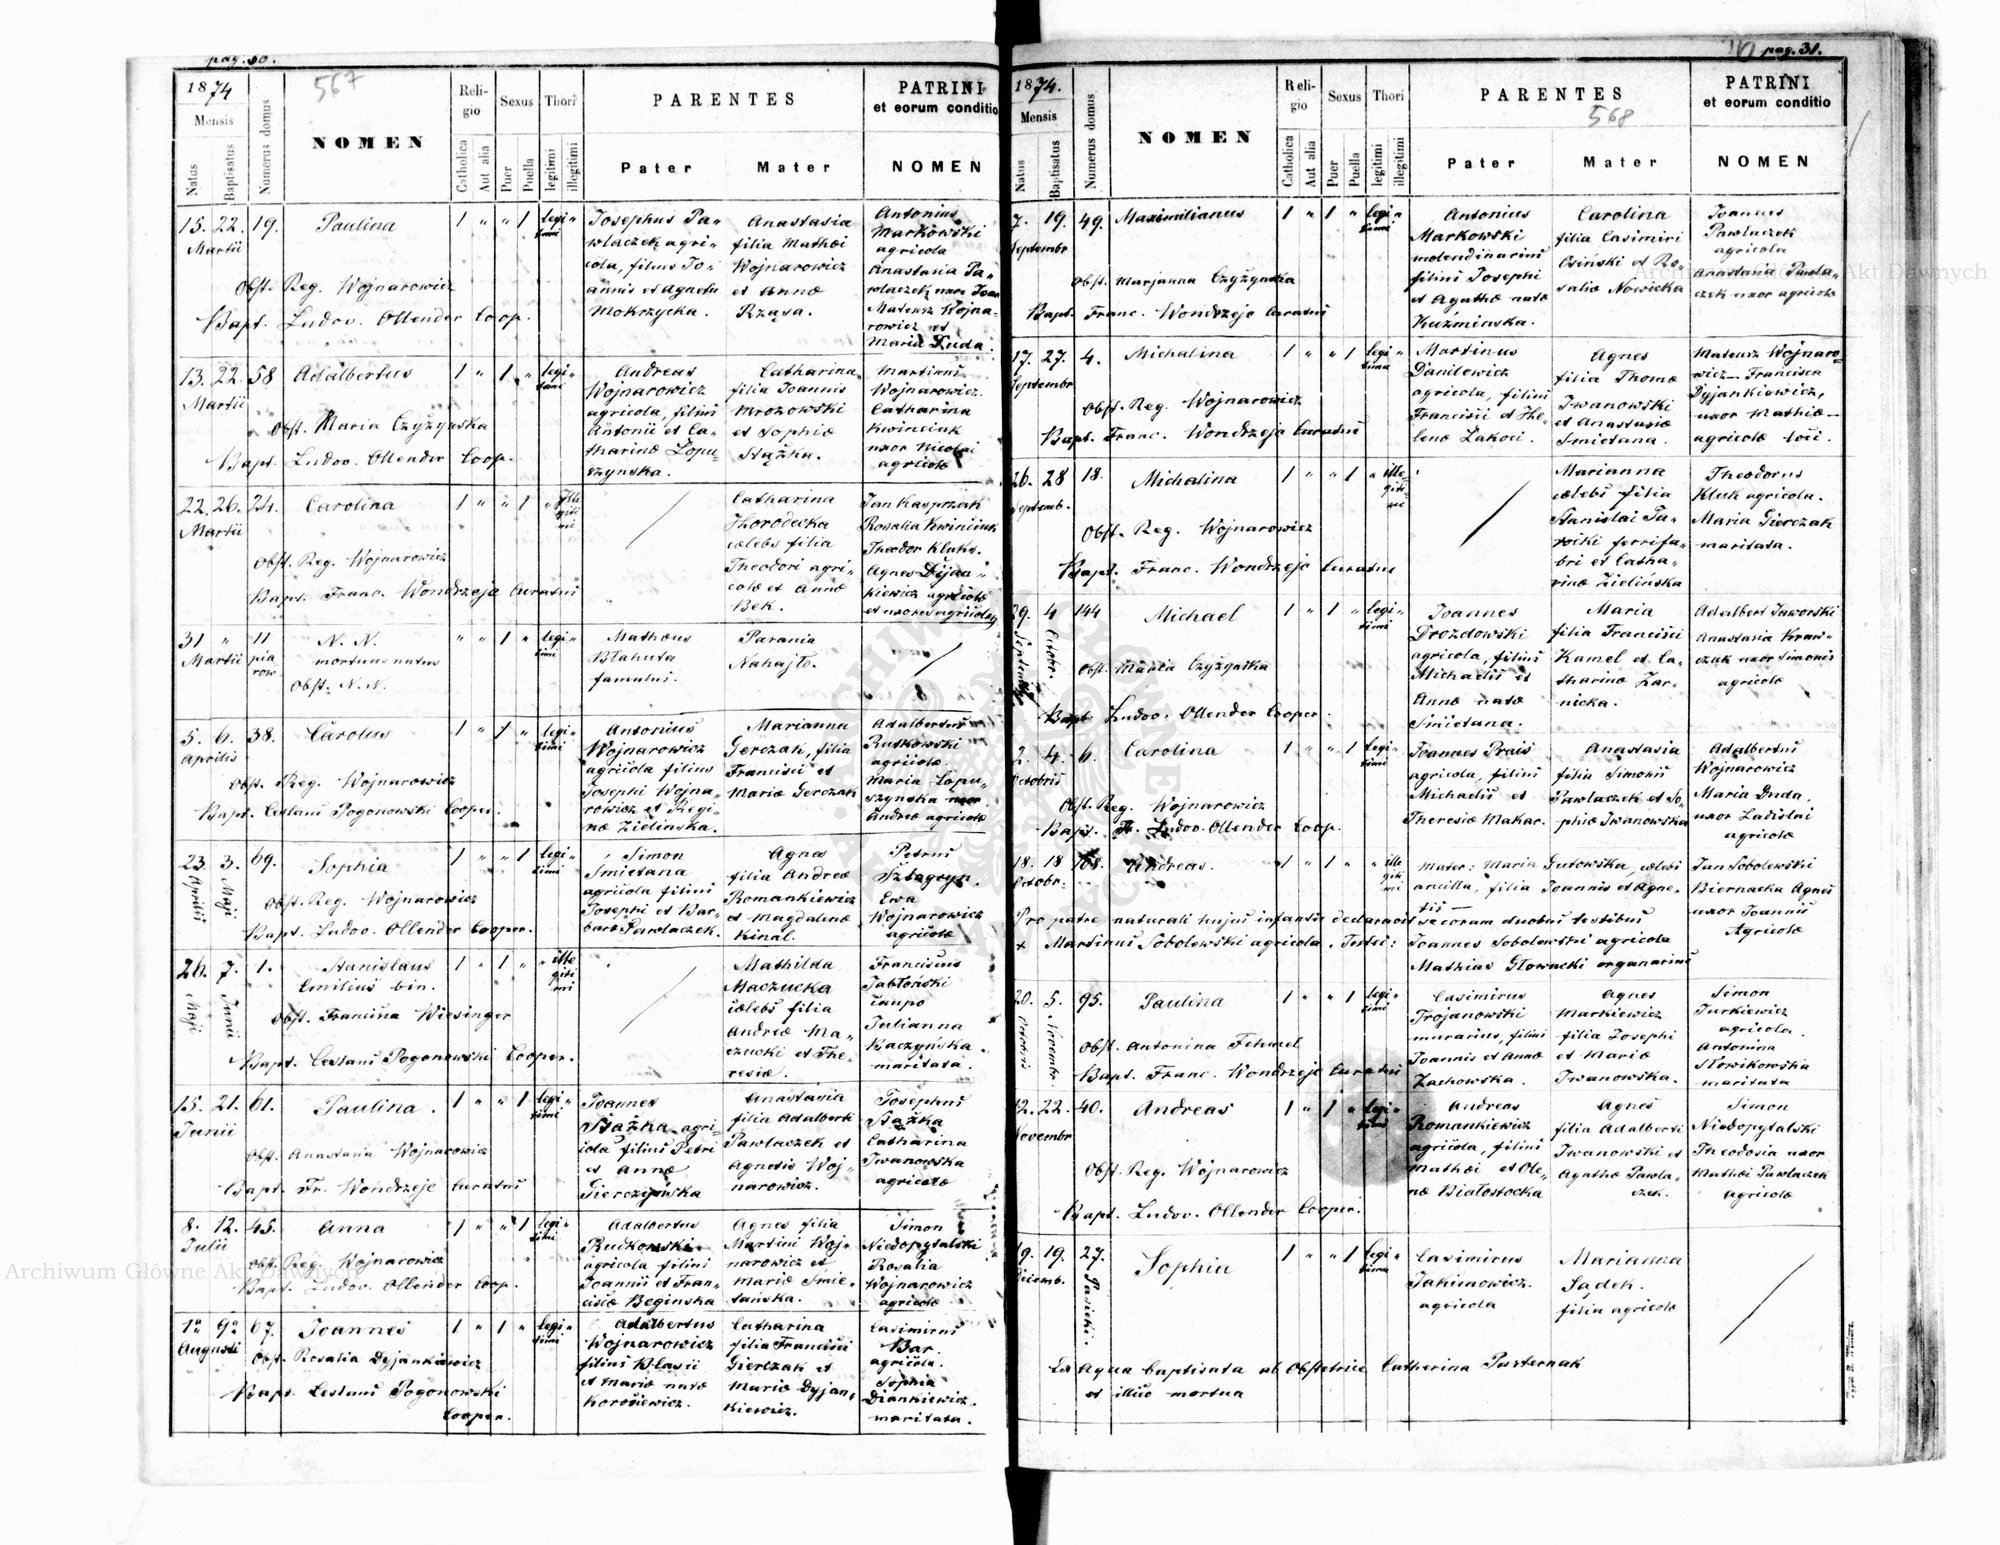 pag. 30.
567
1874
Mensis
Natus
Baptisatus
Numerus domus
NOMEN
Religio
Catholica
Aut alia
Sexus
Puer
Puella
Thori
legitimi
illegitimi
PARENTES
Pater
Mater
PATRINI
et eorum conditio
NOMEN
15. 22. 19. Paulina 1 " " 1 legi "
Martii timi
Obst. Reg. Wojnarowicz
Bapt. Ludov. Ollender Coop.
Josephus Pa-
wlaczek agri-
cola, filius Jo-
annis et Agnetis
Mokrzycka.
Anastasia
filia Mathæi
Wojnarowicz
et Annæ
Rząsa.
Antonius
Markowski
agricola
Anastasia Pa-
wlaczek uxor Joan
Mateusz Wojna-
rowicz et
Maria Duda.
13. 22. 58 Adalbertus 1 " 1 " legi "
Martii timi
Obst. Maria Czyżynska
Bapt. Ludov. Ollender Coop.
Andreas
Wojnarowicz
agricola, filius
Antonii et Ca-
tharinæ Łopu-
szynska.
Catharina
filia Joannis
Mrozowski
et Sophiæ
Stążka.
Martinus
Wojnarowicz.
Catharina
Kwinciak
uxor Nicolai
agricolæ
22. 26. 24. Carolina 1 " " 1 " ille
Martii giti
mi
Obst. Reg. Wojnarowicz
Bapt. Franc. Wondrzeje Curatus
Catharina
Horodecka
cœlebs filia
Theodori agri-
colæ et Annæ
Bek.
Jan Kasprzak
Rosalia Kwiniuk
Theodor Kluks.
Agnes Dijan-
kiewicz agricolæ
et uxores agricolar
31 " 11 N. N. " " 1 " legi "
Martii pia timi
row mortuus natus
Obst. N. N.
Mathæus
Błahuta
famulus.
Parania
Nahajło.
5. 6. 38. Carolus 1 " 1 " legi "
Aprilis timi
Obst. Reg. Wojnarowicz
Bapt. Ceslaus Pogonowski Cooper.
Antonius
Wojnarowicz
agricola filius
Josephi Wojna-
rowicz et Regi-
næ Zielinska.
Marianna
Gerczak, filia
Francisci et
Mariæ Gerczak
Adalbertus
Rutkowski
agricola.
Maria Łopu-
szynska uxor
Andreæ agricolæ
23. 3. 69. Sophia 1 " " 1 legi "
Aprilis Maji timi
Obst. Reg. Wojnarowicz
Bapt. Ludov. Ollender Cooper.
Simon
Smietana
agricola filius
Josephi et Bar-
baræ Pawlaczek.
Agnes
filia Andreæ
Romankiewicz
et Magdalenæ
Kinal.
Petrus
Szlagryn.
Ewa
Wojnarowicz
agricolæ
26. 7. 1. Stanislaus 1 " 1 " " ille
Maji Junii Emilius bin. giti
mi
Obst. Francina Wiesinger
Bapt. Ceslaus Pogonowski Cooper.
Mathilda
Maczucka
cœlebs filia
Andreæ Ma-
czucki et The-
resiæ.
Franciscus
Jabłoński
caupo
Julianna
Baczyńska.
maritata.
15. 21. 61. Paulina. 1 " " 1 legi "
Junii timi
Obst. Anastasia Wojnarowicz
Bapt. Fr. Wondrzeje Curatus
Joannes
Stażka agri-
cola filius Petri
et Annæ
Gierczińska
Anastasia
filia Adalberti
Pawlaczek et
Agnetis Woj-
narowicz.
Josephus
Stażka
Catharina
Iwanowska
agricolæ
8. 12. 45. Anna 1 " " 1 legi "
Julii timi
Obst. Reg. Wojnarowicz
Bapt. Ludov. Ollender Coop.
Adalbertus
Rudkowski
agricola filius
Joannis et Fran-
ciscæ Beginska
Agnes filia
Martini Woj-
narowicz et
Mariæ Śmie-
tańska.
Simon
Niedopytalski
Rosalia
Wojnarowicz
agricolæ
1a 9a 67. Joannes 1 " 1 " legi "
Augusti timi
Obst. Rosalia Dyjankiewicz
Bapt. Ceslaus Pogonowski
Cooper.
Adalbertus
Wojnarowicz
filius Blasii
et Mariæ natæ
Korosiewicz.
Catharina
filia Francisci
Gierczak et
Mariæ Dyjan-
kiewicz.
Casimirus
Bar.
agricola.
Sophia
Diankiewicz.
maritata.
pag. 31.
568
1874.
Mensis
Natus
Baptisatus
Numerus domus
NOMEN
Religio
Catholica
Aut alia
Sexus
Puer
Puella
Thori
legitimi
illegitimi
PARENTES
Pater
Mater
PATRINI
et eorum conditio
NOMEN
7. 19. 49. Maximilianus 1 " 1 " legi "
Septembr timi
Obst. Marjanna Czyżynska
Bapt. Franc. Wondrzeje Curatus
Antonius
Markowski
molendinarius
filius Josephi
et Agathæ natæ
Kuźminska.
Carolina
filia Casimiri
Osiński et Ro-
saliæ Nowicka
Joannes
Pawlaczek
agricola
Anastasia Pawla-
czek uxor agricolæ
17. 27. 4. Michalina 1 " " 1 legi "
Septembr timi
Obst. Reg. Wojnarowicz
Bapt. Franc. Wondrzeje Curatus
Martinus
Danilewicz
agricola, filius
Francisci et He-
lenæ Zakoci.
Agnes
filia Thomæ
Iwanowski
et Anastasiæ
Smietana.
Mateusz Wojnaro-
wicz — Francisca
Dyjankiewicz,
uxor Mathiæ —
agricolæ loci.
26. 28 18. Michalina 1 " " 1 " ille-
Septemb. giti-
mi
Obst. Reg. Wojnarowicz
Bapt. Franc. Wondrzeje Curatus
Marianna
cœlebs filia
Stanislai Ta-
rwiki ferrifa-
bri et Catha-
rinæ Zielińska
Theodorus
Kluk agricola.
Maria Gierczak
maritata.
29. 4 144 Michael 1 " 1 " legi "
Septembr Octobr. timi
Obst. Maria Czyżynska
Bapt Ludov. Ollender Cooper.
Joannes
Drozdowski
agricola, filius
Michaelis et
Annæ natæ
Smietana.
Maria
filia Francisci
Kamel et Ca-
tharinæ Zar-
nicka.
Adalbert Jaworski
Anastasia Kraw-
czuk uxor Simonis
agricolæ
2. 4. 6. Carolina 1 " " 1 legi "
Octobris timi
Obst. Reg. Wojnarowicz
Bapt. Fr. Ludov. Ollender Coop.
Joannes Prais
agricola, filius
Michaelis et
Theresiæ Makar.
Anastasia
filia Simonis
Pawlaczek et So-
phiæ Iwanowska
Adalbertus
Wojnarowicz
Maria Duda,
uxor Ladislai
agricolæ
18. 18 108. Andreas. 1 " 1 " " ille
Octobr. giti
mi
Mater: Maria Gutowska, cœlebs
ancilla, filia Joannis et Agne-
tis —
Jan Sobolewski
Biernacka Agnes
uxor Joannis
Agricolæ
Pro patre naturali hujus infantis declaravit se coram duobus testibus
+ Martinus Sobolewski agricola. Testes: Joannes Sobolewski agricola
Mathias Głowacki organarius
20. 5. 95. Paulina 1 " " 1 legi "
Octobris Novembr. timi
Obst. Antonina Fehmel
Bapt. Franc. Wondrzeje Curatus
Casimirus
Trojanowski
murarius, filius
Joannis et Annæ
Zachowska.
Agnes
Markiewicz
filia Josephi
et Mariæ
Iwanowska.
Simon
Turkiewicz
agricola.
Antonina
Słowikowska
maritata
12. 22. 40. Andreas 1 " 1 " legi "
Novembr timi
Obst. Reg. Wojnarowicz
Bapt. Ludov. Ollender Cooper.
Andreas
Romankiewicz
agricola, filius
Mathæi et Ole-
næ Białostocka
Agnes
filia Adalberti
Iwanowski et
Agathæ Pawla-
czek.
Simon
Niedopytalski
Theodosia uxor
Mathæi Pawlaczek
agricolæ
19. 19. 27. Sophia 1 " " 1 legi "
Decemb. Pasieki. timi
Casimirus
Jakimowicz.
agricola
Marianna
Sądek.
filia agricolæ
Ex aqua baptisata ab Obstetrice Catherina Pasternak
et illico mortua
Archiwum Główne Akt Dawnych
Archiwum Główne Akt Dawnych